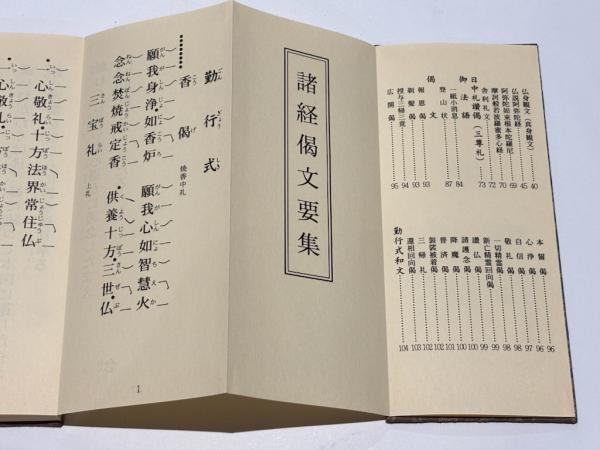 仏身観文(真身観文)‥‥40
仏説阿弥陀経‥‥45
阿弥陀如来根本陀羅尼‥‥69
摩訶般若波羅蜜多心経‥‥70
舎利礼文‥‥72
日中礼讃偈(三尊礼)‥‥73
御法語
一紙小消息‥‥84
登山状‥‥87
偈文
報恩偈‥‥93
剃髪偈‥‥93
授与三帰三竟‥‥94
広開偈‥‥95
本誓偈‥‥96
心浄偈‥‥96
自信偈‥‥97
敬礼偈‥‥98
一切精霊偈‥‥98
新亡精霊回向偈‥‥99
讃仏偈‥‥99
請護念偈‥‥100
降魔偈‥‥100
普済偈‥‥101
袈裟被着偈‥‥102
三帰礼‥‥102
還相回向偈‥‥103
勤行式和文‥‥104
諸経偈文要集
勤行式
香偈 焼香中礼
願我身浄如香炉 願我心如智慧火
念念焚焼戒定香 供養十方三世仏
三宝礼 上礼
一心敬礼十方法界常住仏
一心敬礼十方法界常住
1